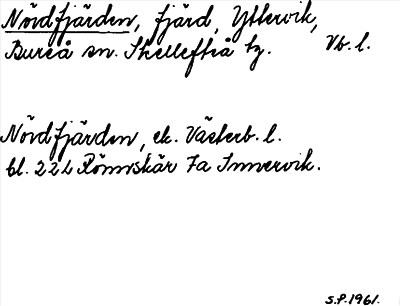 Nördfjärden, fjärd, Yttervik,
Bureå sn. Skellefteå tg. Vb. l.
Nördfjärden, ek. Västerb. l.
bl. 22 L Rönnskär 7a Innervik.
S.P. 1961.